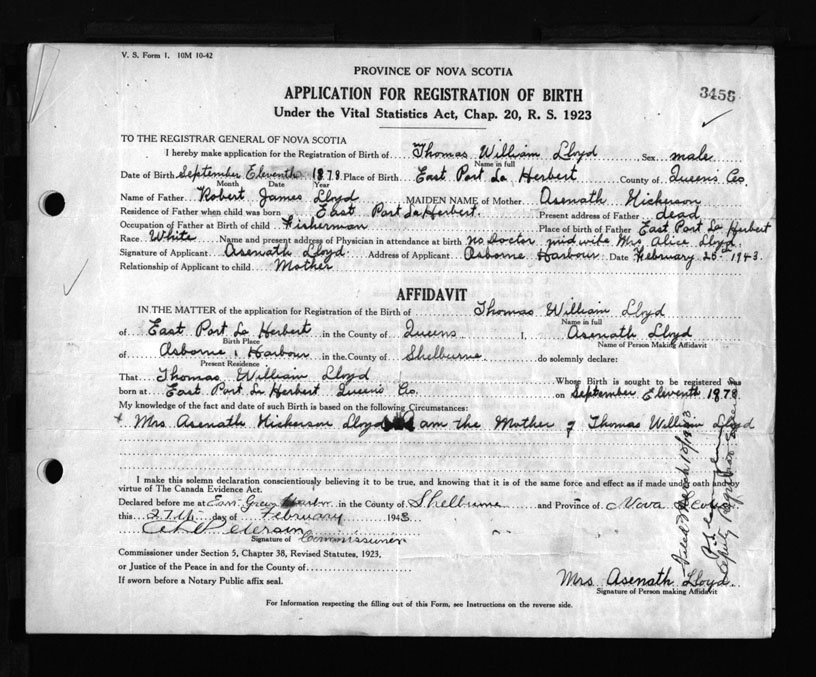 V. S. Form 1. 10M 10-42
PROVINCE OF NOVA SCOTIA
APPLICATION FOR REGISTRATION OF BIRTH
3456
Under the Vital Statistics Act, Chap. 20, R. S. 1923
TO THE REGISTRAR GENERAL OF NOVA SCOTIA
I hereby make application for the Registration of Birth of Thomas William Lloyd Sex male
Name in full
Date of Birth September Eleventh 1878 Place of Birth East Port La Herbert County of Queens Co.
Month Date Year
Name of Father Robert James Lloyd MAIDEN NAME of Mother Asenath Hickerson
Residence of Father when child was born East Port La Herbert. Present address of Father dead
Occupation of Father at Birth of child Fisherman Place of birth of Father East Port La Herbert
Race White Name and present address of Physician in attendance at birth no Doctor, mid wife Mrs Alice Lloyd
Signature of Applicant Asenath Lloyd Address of Applicant Osborne Harbour Date February 26th 1943.
Relationship of Applicant to child Mother
AFFIDAVIT
IN THE MATTER of the application for Registration of the Birth of Thomas William Lloyd
Name in full
of East Port La Herbert in the County of Queens I, Asenath Lloyd
Birth Place Name of Person Making Affidavit
of Osborne Harbour in the County of Shelburne do solemnly declare:
Present Residence
That Thomas William Lloyd Whose Birth is sought to be registered was
born at East Port La Herbert Queens Co. on September Eleventh 1878
My knowledge of the fact and date of such Birth is based on the following Circumstances:
Mrs Asenath Hickerson Lloyd am the Mother of Thomas William Lloyd
I make this solemn declaration conscientiously believing it to be true, and knowing that it is of the same force and effect as if made under oath and by
virtue of The Canada Evidence Act.
Declared before me at East Green Harbor in the County of Shelburne and Province of Nova Scotia
this 27th day of February 1943
Pedersen
Signature of Commissioner
Commissioner under Section 5, Chapter 38, Revised Statutes, 1923,
or Justice of the Peace in and for the County of
If sworn before a Notary Public affix seal.
Mrs Asenath Lloyd
Signature of Person making Affidavit
For Information respecting the filling out of this Form, see Instructions on the reverse side.
Filed March 10/1943
Deputy Registrar General